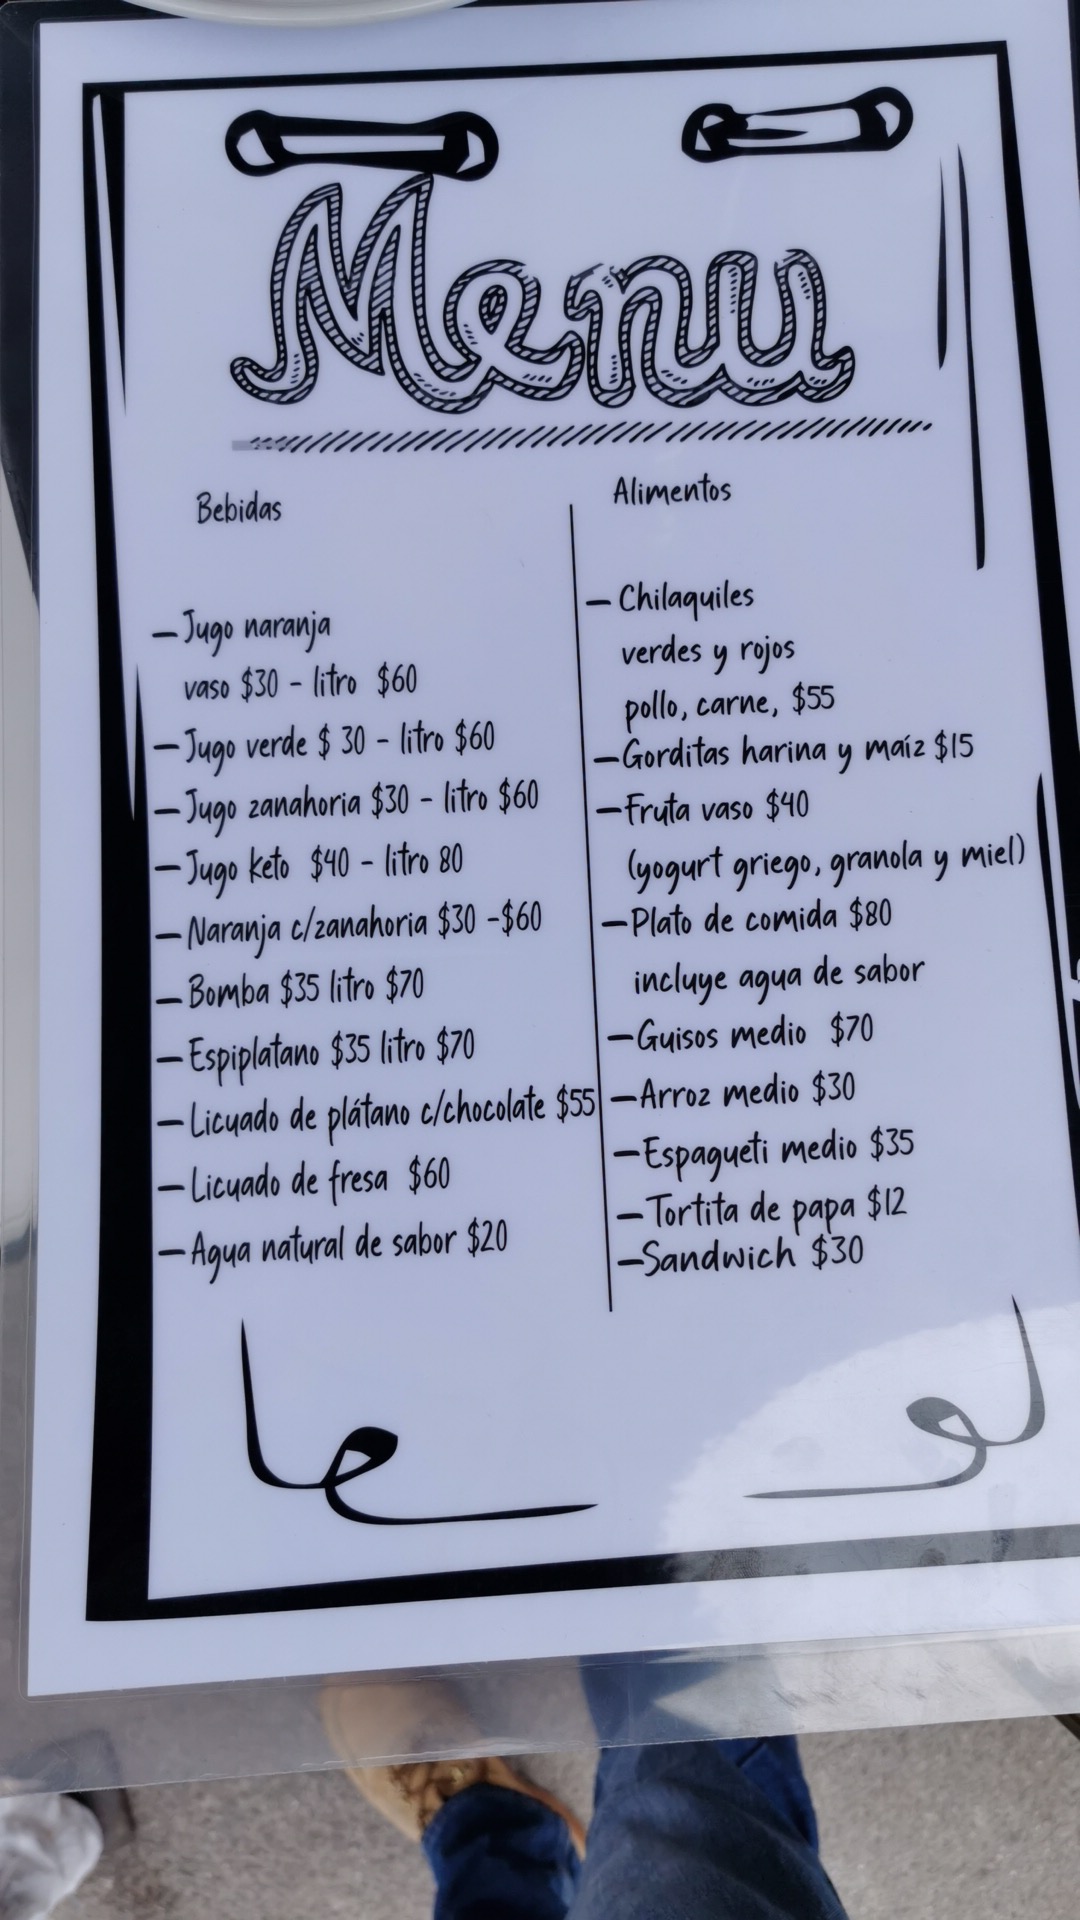 Menu
Bebidas
— Jugo naranja
vaso $30 - litro $60
— Jugo verde $ 30 - litro $60
— Jugo zanahoria $30 - litro $60
— Jugo keto $40 - litro 80
— Naranja c/zanahoria $30 -$60
— Bomba $35 litro $70
— Espiplatano $35 litro $70
— Licuado de plátano c/chocolate $55
— Licuado de fresa $60
— Agua natural de sabor $20
Alimentos
— Chilaquiles
verdes y rojos
pollo, carne, $55
—Gorditas harina y maíz $15
—Fruta vaso $40
(yogurt griego, granola y miel)
—Plato de comida $80
incluye agua de sabor
—Guisos medio $70
—Arroz medio $30
—Espagueti medio $35
—Tortita de papa $12
—Sandwich $30